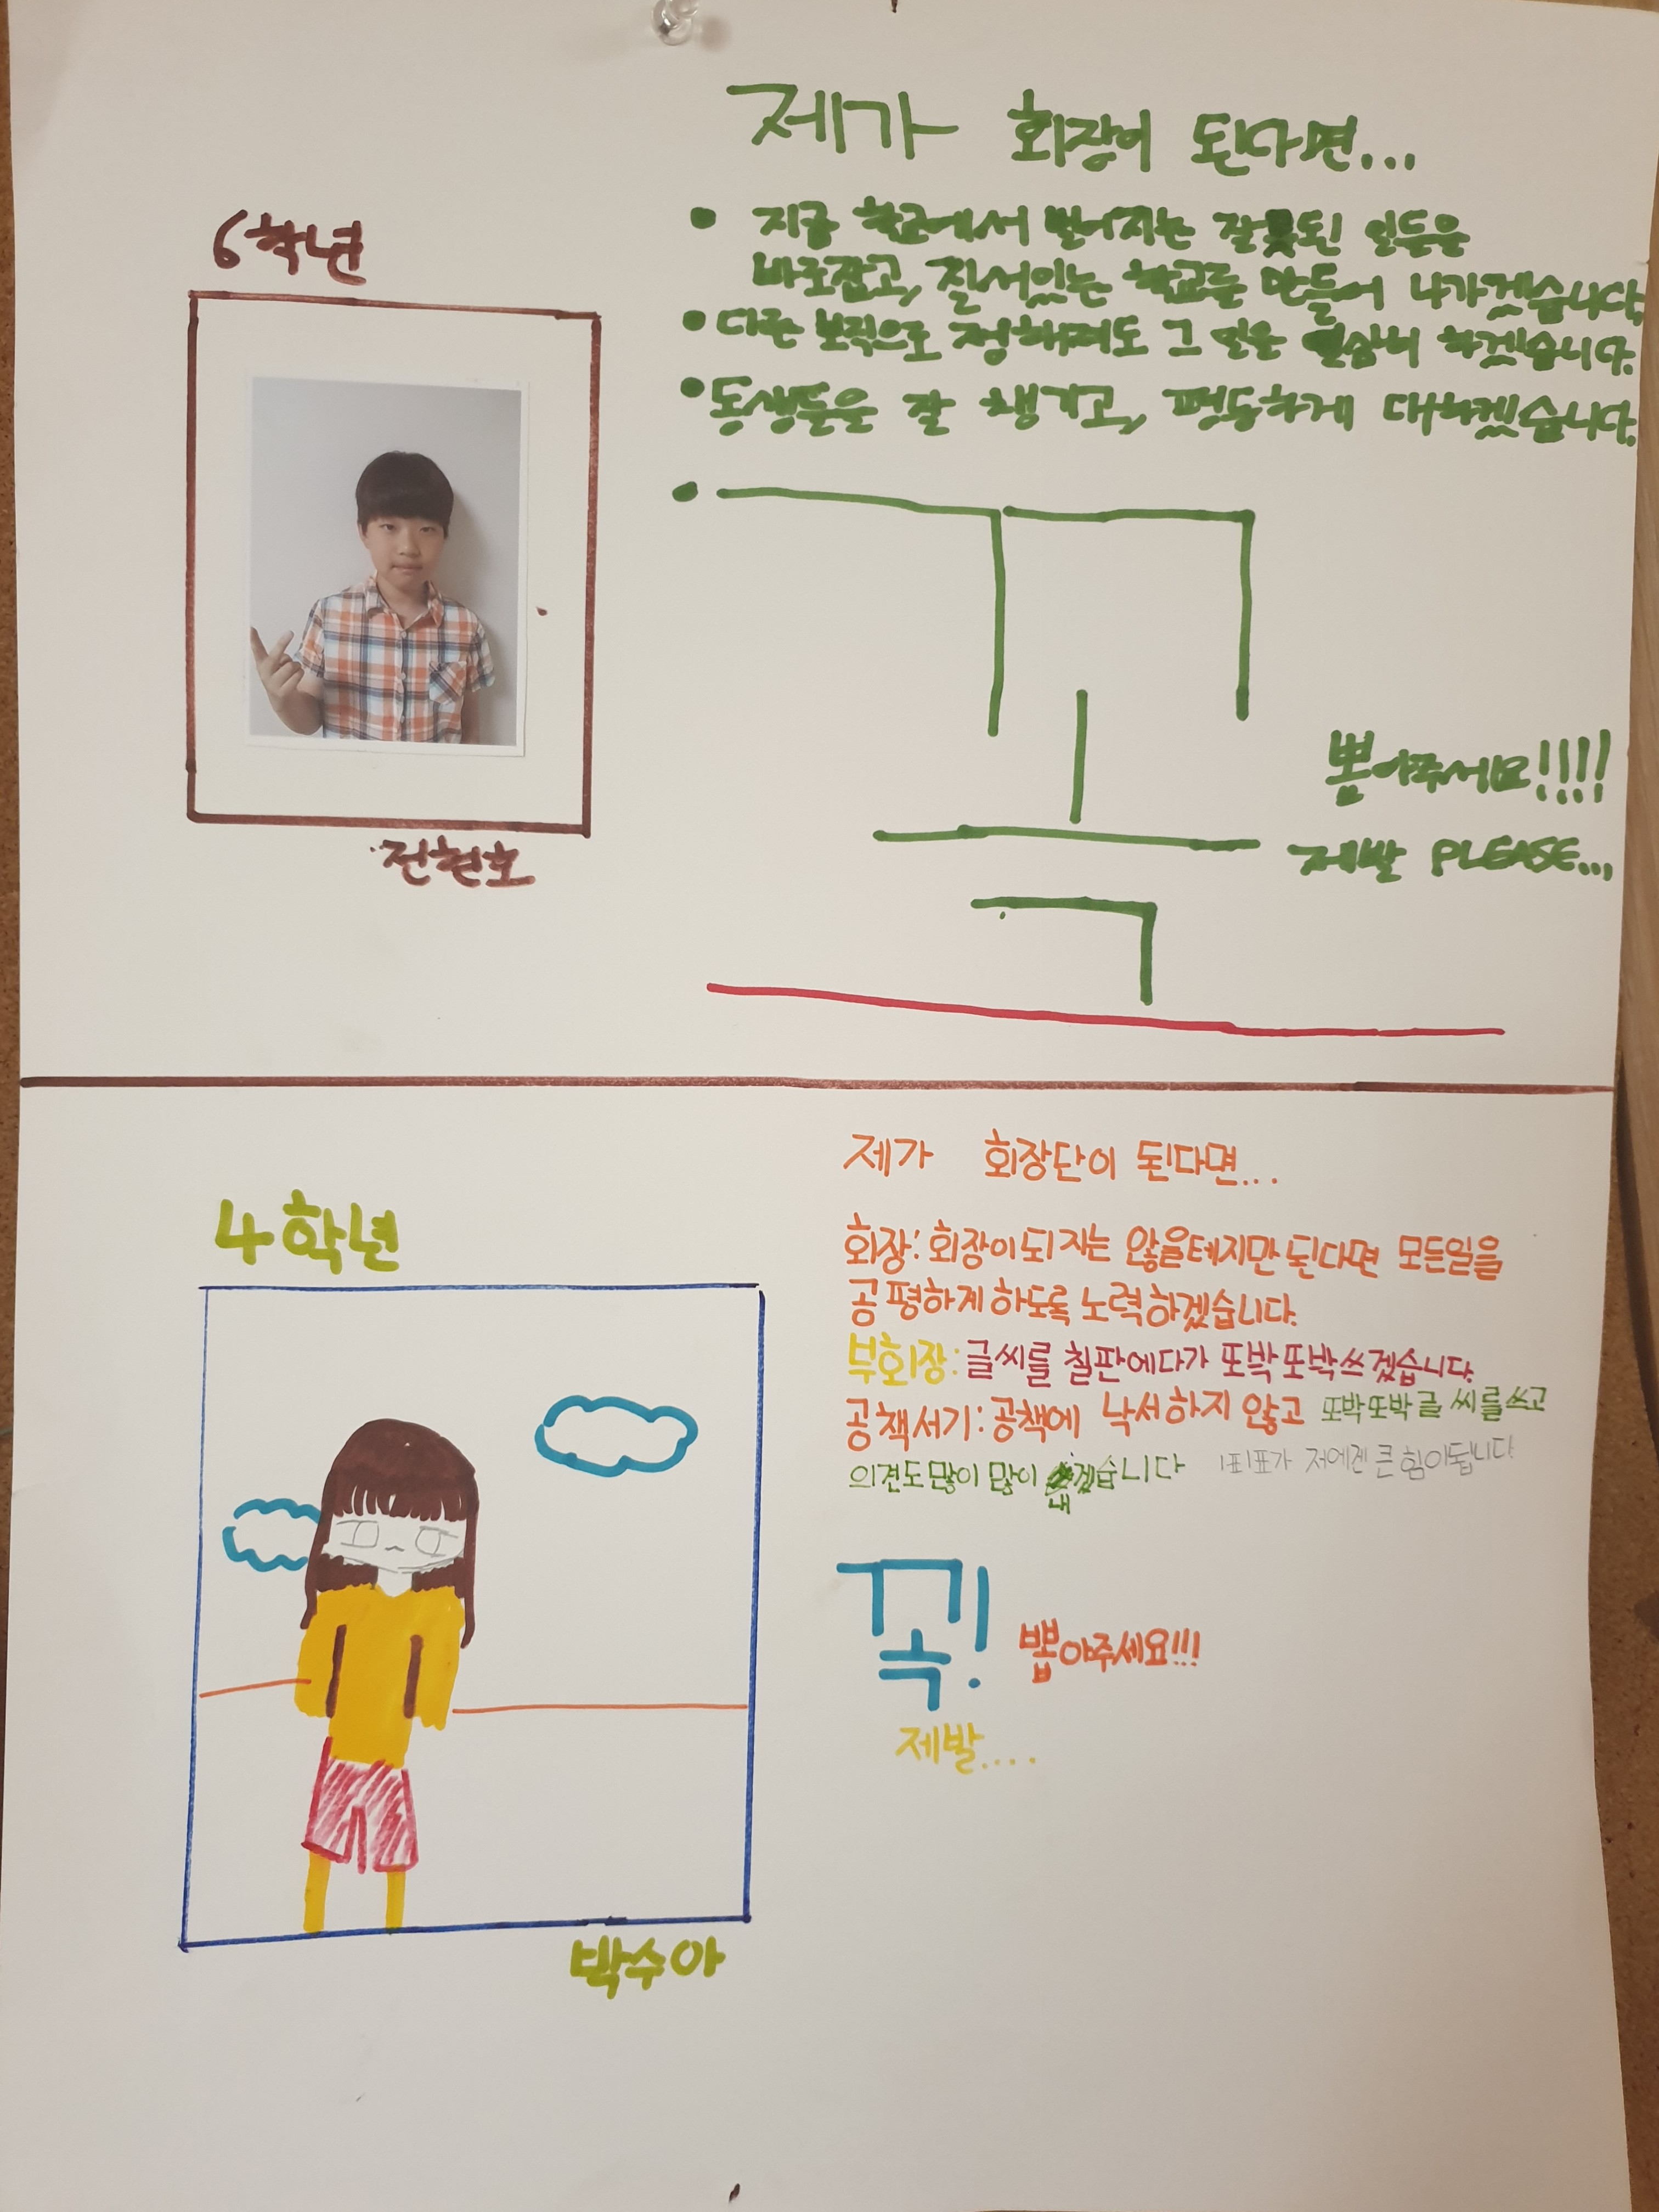 제가 회장이 된다면...
6학년
• 지금 학교에서 벌어지는 잘못된 일들은
바로잡고, 질서있는 학교를 만들어 나가겠습니다.
• 다른 보직으로 정해져도 그 일을 열심히 하겠습니다.
• 동생들을 잘 챙기고, 평등하게 대하겠습니다.
• 꼭
뽑아주세요!!!!
제발 PLEASE...
전현호
제가 회장단이 된다면...
4학년
회장: 회장이 되지는 않을테지만 된다면 모든일을
공평하게 하도록 노력하겠습니다.
부회장: 글씨를 칠판에다가 또박또박쓰겠습니다.
공책서기: 공책에 낙서하지 않고 또박또박 글씨를 쓰고
의견도 많이 많이 내겠습니다 1표1표가 저에겐 큰 힘이됩니다
꼭! 뽑아주세요!!!
제발....
박수아